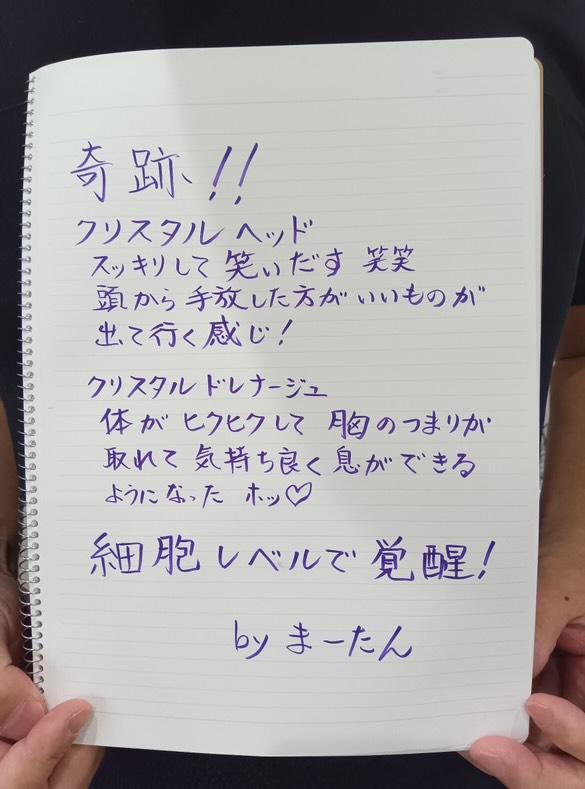 奇跡、!!
クリスタル ヘッド
スッキリして 笑いだす 笑笑
頭から手放した方がいいものが
出て行く感じ!
クリスタル ドレナージュ
体が ヒクヒクして 胸のつまりが
取れて 気持ち良く 息ができる
ようになった ホッ♡
細胞レベルで 覚醒!
by まーたん